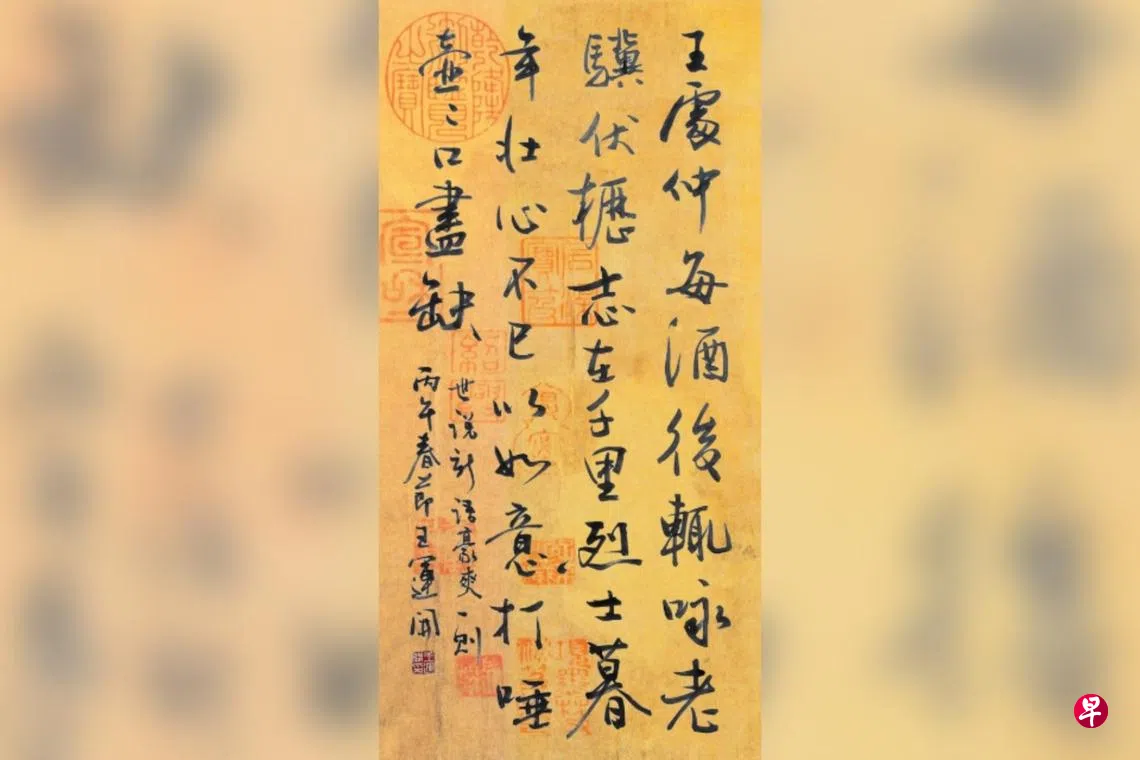 王處仲每酒後輒咏老
驥伏櫪志在千里烈士暮
年壯心不已以如意打唾
壺壺口盡缺
世说新语豪爽一则
丙午春节王運開
乾隆御覽之寶
早